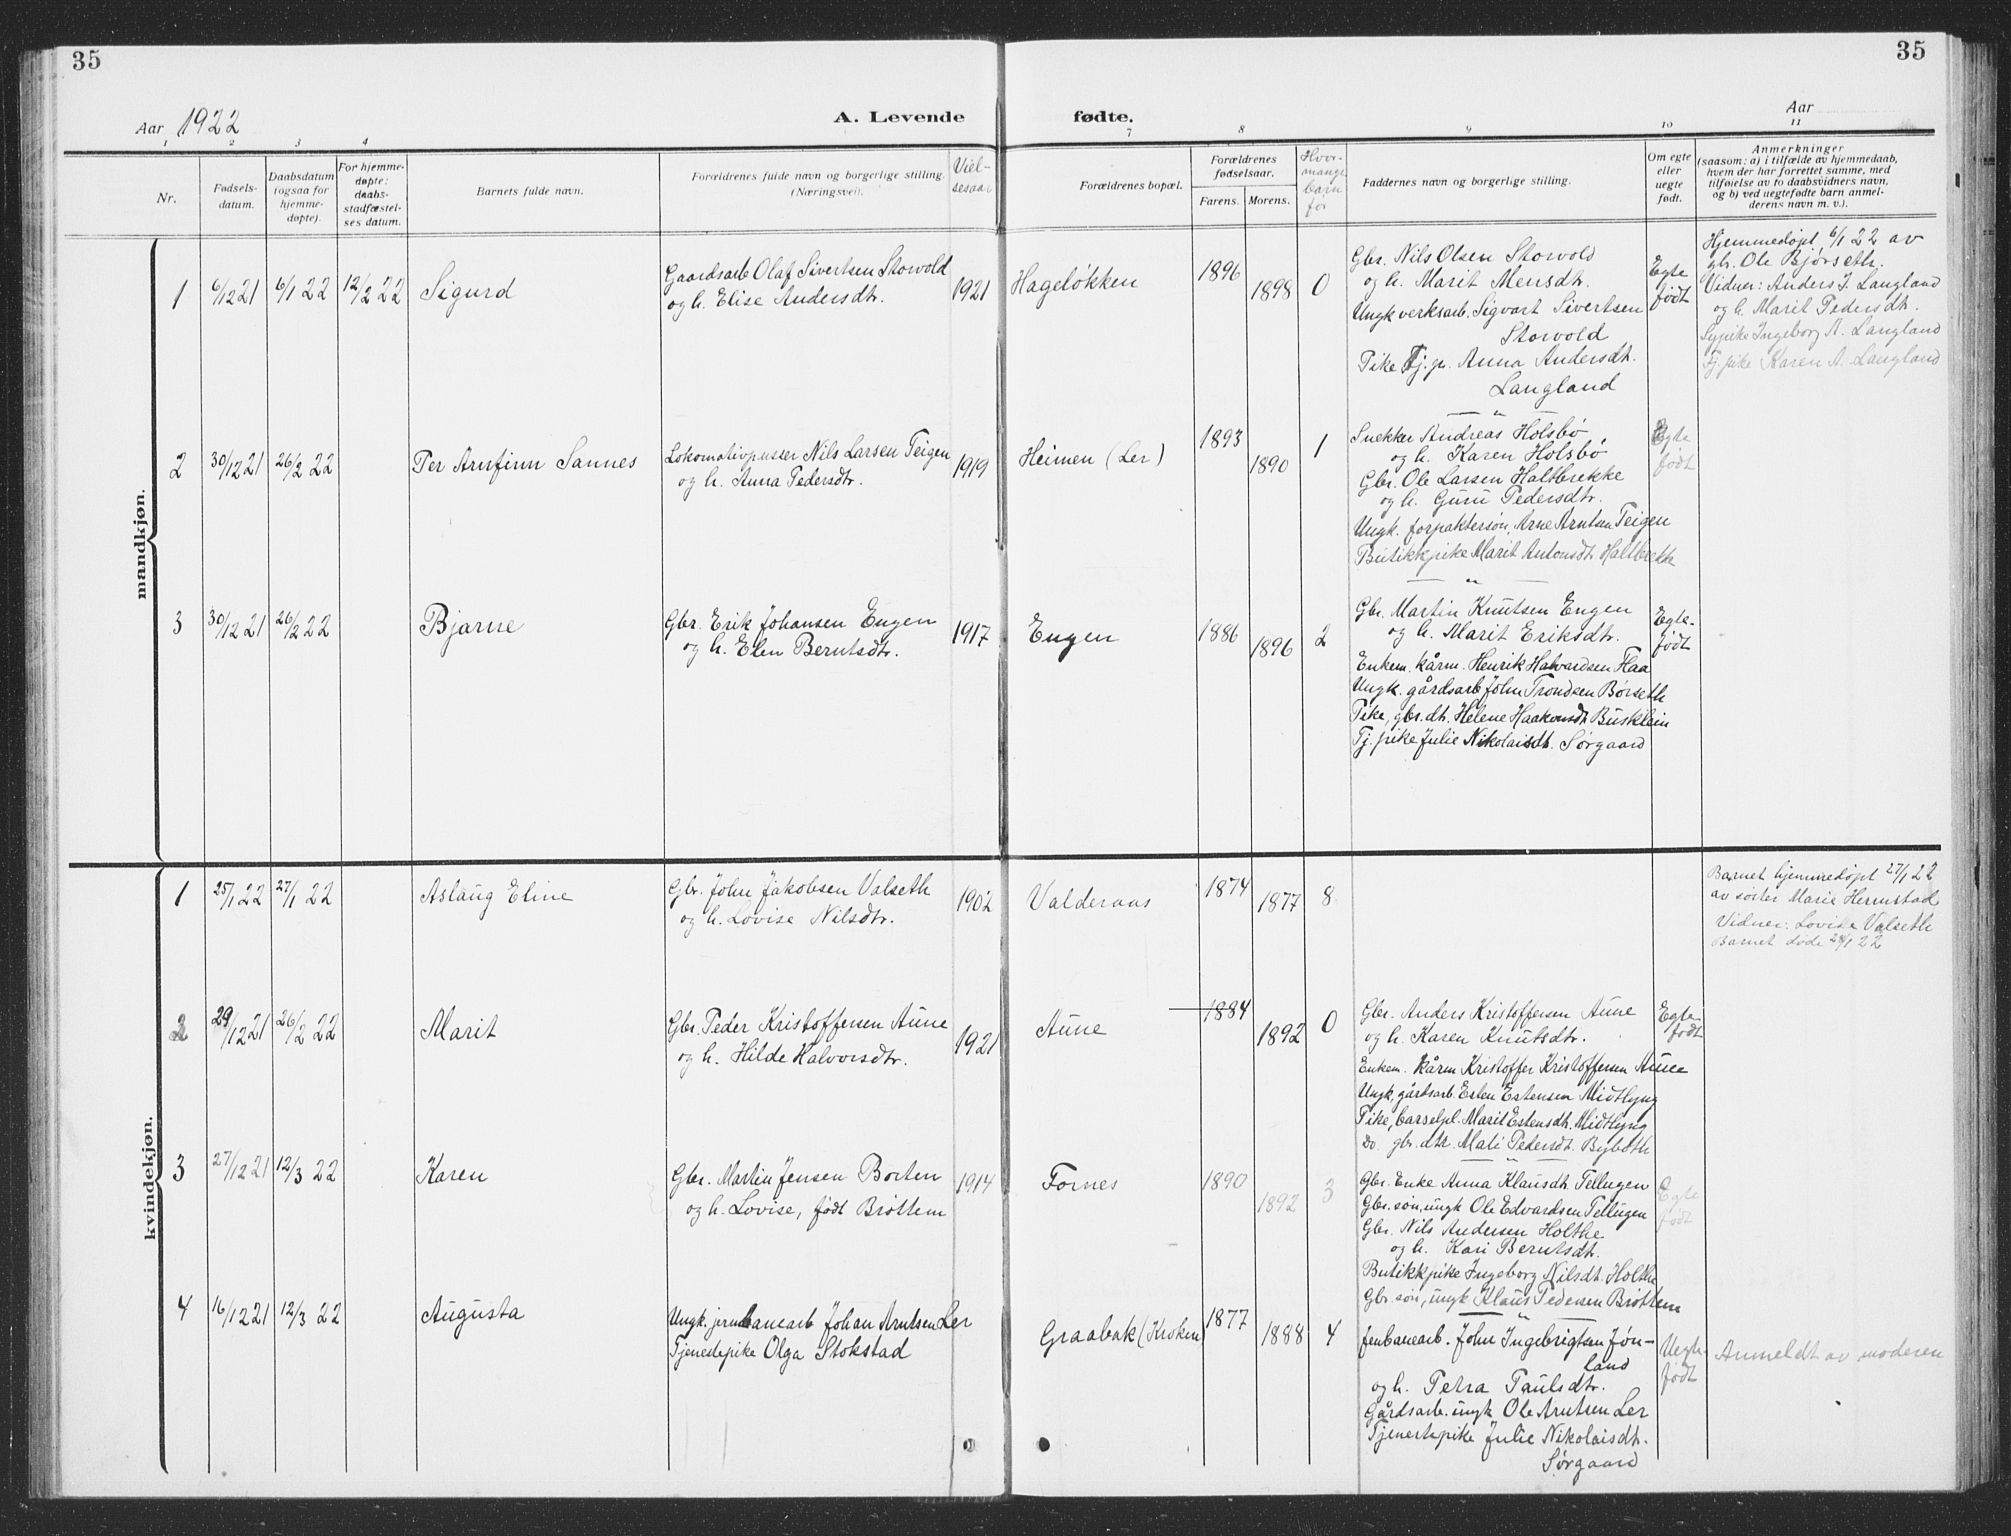 35
35
Aar 1922
A. Levende fødte.
Aar
1 2 3 4 7 8 9 10 11
Nr.
Fødsels-
datum.
Daabsdatum
(ogsaa for
hjemme-
døpte).
For hjemme-
døpte:
daabs-
stadfæstel-
ses datum.
Barnets fulde navn.
Forældrenes fulde navn og borgerlige stilling.
(Næringsvei).
Viel-
sesaar
Forældrenes bopæl.
Forældrenes
fødselsaar.
Farens. Morens.
Hvor
mange
barn
før
Faddernes navn og borgerlige stilling.
Om egte
eller
uegte
født.
Anmerkninger
(saasom: a) i tilfælde av hjemmedaab,
hvem der har forrettet samme, med
tilføielse av to daabsvidners navn,
og b) ved uegtefødte barn anmel-
derens navn m. v.).
mandkjøn.
1 6/12 21 6/1 22 12/2 22 Sigurd
Gaardsarb Olaf Sivertsen Storvold
og h. Elise Andersdtr.
1921 Hageløkken 1896 1898 0
Gbr. Nils Olsen Storvold
og h. Marit Mensdt.
Ungk verksarb. Sigvart Sivertsen
Storvold
Pike Tj.p. Anna Andersdt.
Langland
Egte
født
Hjemmedøpt 6/1 22 av
gb. Ole Bjørseth.
Vidner: Anders J. Langland
og h. Marit Pedersdt.
Sypike Ingeborg A. Langland
Tj. pike Karen A. Langland
2 30/12 21 26/2 22 Per Arnfinn Sannes
Lokomotivpusser Nils Larsen Teigen
og h. Anna Pedersdtr.
1919 Heimen (Ler) 1893 1890 1
Snekker Andreas Holsbø
og h. Karen Holsbø
Gbr. Ole Larsen Haltbrekke
og h. Guru Pedersdtr.
Ungk. forpaktersøn, Arne Arntsen Teigen
Butikkpike Marit Antonsdt. Haltbrekk
Egte
født
3 30/12 21 26/2 22 Bjarne
Gbr. Erik Johansen Engen
og h. Elen Berntsdtr.
1917 Engen 1886 1896 2
Gbr. Martin Knutsen Engen
og h. Marit Eriksdtr.
Enkem. kårm. Henrik Halvardsen Flaa
Ungk. gårdsarb John Trondsen Børseth
Pike, gbr. dt. Helene Haakonsdt Busklein
Tj. pike Julie Nikolaisdt. Sørgaard
Egte-
født
kvindekjøn.
1 25/1 22 27/1 22 Aslaug Eline
Gbr. John Jakobsen Valseth
og h. Lovise Nilsdtr.
1902 Valderaas 1874 1877 8
Barnet hjemmedøpt 27/1 22
av søster Marie Hermstad
Vidner: Lovise Valseth
Barnet døde 28/1 22
2 29/12 21 26/2 22 Marit
Gbr. Peder Kristoffersen Aune
og h. Hilde Halvorsdtr.
1921 Aune 1884 1892 0
Gbr. Anders Kristoffersen Aune
og h. Karen Knutsdtr.
Enkem. kårm Kristoffer Kristoffersen Aune
Ungk, gårdsarb. Esten Estensen Midtlyng
Pike, barselpl. Marit Estensdt. Midtlyng
Do. gbr. dtr. Mali Pedersdt. Bybøth
Egte-
født
3 27/12 21 12/3 22 Karen
Gbr. Martin Jensen Borten
og h. Lovise, født Brøttem
1914 Fornes 1890 1892 3
Gbr. Enke Anna Klausdt. Tellugen
Gbr. søn, ungk Ole Edvardsen Tellugen
Gbr. Nils Andersen Holthe
og h. Kari Berntsdt.
Butikkpike Ingeborg Nilsdt. Holthe
Gbr. søn, ungk Klaus Pedersen Brøttem
Egte
født
4 16/12 21 12/3 22 Augusta
Ungk. jernbanearb Johan Arntsen Ler
Tjenestepike Olga Stokstad
Graabak (Kroken) 1877 1888 4
Jernbanearb. John Ingebrigtsen Jøn-
land
og h. Petra Paulsdtr.
Gårdsarb. ungk Ole Arntsen Ler
Tjenestepike Julie Nikolaisdt.
Sørgaard
Uegte-
født
Anmeldt av moderen